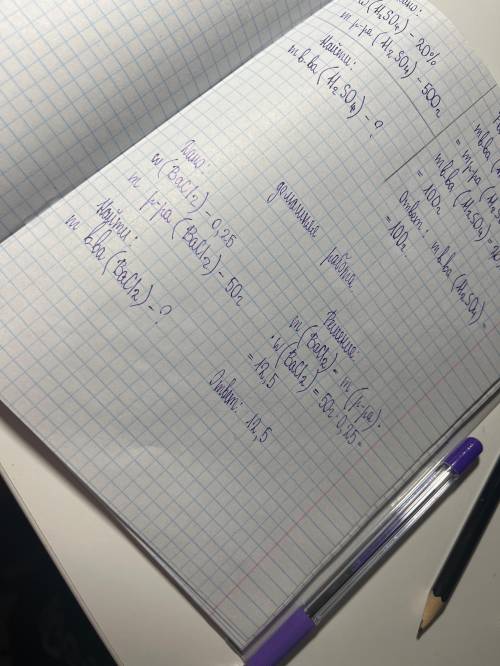 w(H₂SO₄) - 20%
m р-ра (H₂SO₄) - 500г
Найти:
m в-ва (H₂SO₄) - ?
= m р-ра (H₂
m в-ва (H₂SO₄) =
= 100г
Ответ: m в-ва (H₂SO₄) =
= 100г
домашняя работа.
Дано:
w (BaCl₂) - 0,25
m р-ра (BaCl₂) - 50г
Найти:
m в-ва (BaCl₂) - ?
Решение:
m (BaCl₂) = m (р-ра) ·
· w (BaCl₂) = 50г · 0,25 =
= 12,5
Ответ: 12,5